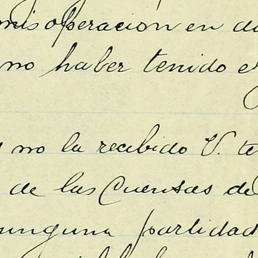 mis operacion en d
no haber tenido e
no la recibido V. te
de las Cuentas de
ninguna partidad